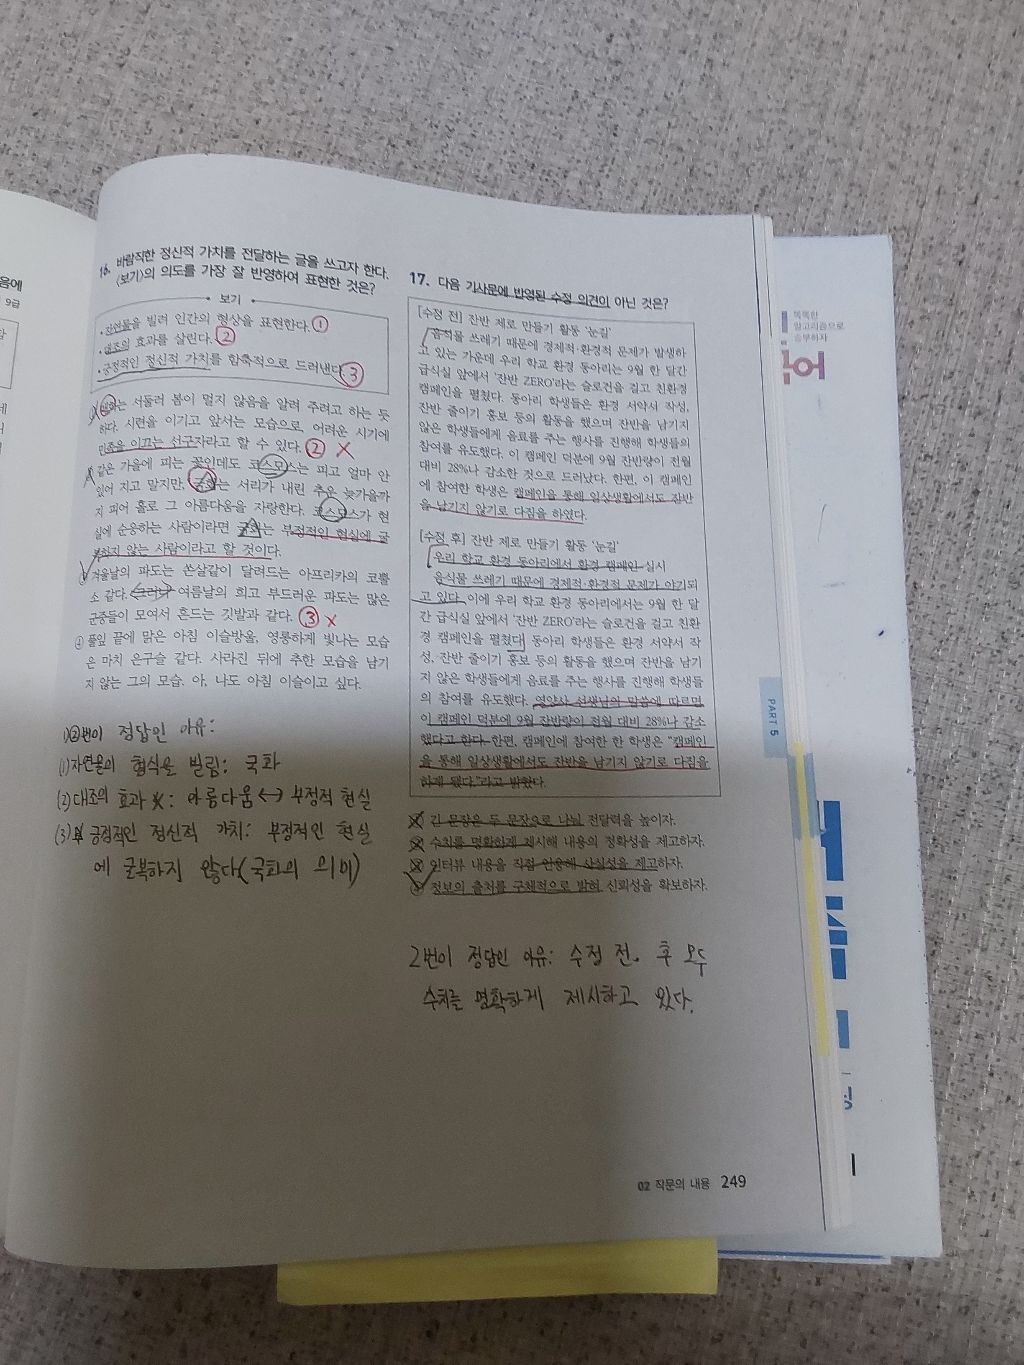 음에
9급
16. 바람직한 정신적 가치를 전달하는 글을 쓰고자 한다.
〈보기〉의 의도를 가장 잘 반영하여 표현한 것은?
보기
• 자연물을 빌려 인간의 형상을 표현한다. ①
• 대조의 효과를 살린다. ②
• 긍정적인 정신적 가치를 함축적으로 드러낸다. ③
는 서둘러 봄이 멀지 않음을 알려 주려고 하는 듯
하다. 시련을 이기고 앞서는 모습으로, 어려운 시기에
민족을 이끄는 선구자라고 할 수 있다. ② X
같은 가을에 피는 꽃인데도 코스모스는 피고 얼마 안
있어 지고 말지만, 국화는 서리가 내린 추운 늦가을까
지 피어 홀로 그 아름다움을 자랑한다. 코스모스가 현
실에 순응하는 사람이라면 국화는 부정적인 현실에 굴
복하지 않는 사람이라고 할 것이다.
겨울날의 파도는 쏜살같이 달려드는 아프리카의 코뿔
소 같다. 그러나 여름날의 희고 부드러운 파도는 많은
군중들이 모여서 흔드는 깃발과 같다. ③ X
④ 풀잎 끝에 맑은 아침 이슬방울, 영롱하게 빛나는 모습
은 마치 은구슬 같다. 사라진 뒤에 추한 모습을 남기
지 않는 그의 모습. 아, 나도 아침 이슬이고 싶다.
1)②번이 정답인 이유:
(1)자연물의 형식을 빌림: 국화
(2)대조의 효과: 아름다움↔부정적 현실
(3) 긍정적인 정신적 가치: 부정적인 현실
에 굴복하지 않다(국화의 의미)
17. 다음 기사문에 반영된 수정 의견이 아닌 것은?
[수정 전] 잔반 제로 만들기 활동 '눈길'
음식물 쓰레기 때문에 경제적·환경적 문제가 발생하
고 있는 가운데 우리 학교 환경 동아리는 9월 한 달간
급식실 앞에서 '잔반 ZERO'라는 슬로건을 걸고 친환경
캠페인을 펼쳤다. 동아리 학생들은 환경 서약서 작성,
잔반 줄이기 홍보 등의 활동을 했으며 잔반을 남기지
않은 학생들에게 음료를 주는 행사를 진행해 학생들의
참여를 유도했다. 이 캠페인 덕분에 9월 잔반량이 전월
대비 28%나 감소한 것으로 드러났다. 한편, 이 캠페인
에 참여한 학생은 캠페인을 통해 일상생활에서도 잔반
을 남기지 않기로 다짐을 하였다.
[수정 후] 잔반 제로 만들기 활동 '눈길'
우리 학교 환경 동아리에서 환경 캠페인 실시
음식물 쓰레기 때문에 경제적·환경적 문제가 야기되
고 있다. 이에 우리 학교 환경 동아리에서는 9월 한 달
간 급식실 앞에서 '잔반 ZERO'라는 슬로건을 걸고 친환
경 캠페인을 펼쳤다. 동아리 학생들은 환경 서약서 작
성, 잔반 줄이기 홍보 등의 활동을 했으며 잔반을 남기
지 않은 학생들에게 음료를 주는 행사를 진행해 학생들
의 참여를 유도했다. 영양사 선생님의 말씀에 따르면
이 캠페인 덕분에 9월 잔반량이 전월 대비 28%나 감소
했다고 한다. 한편, 캠페인에 참여한 한 학생은 "캠페인
을 통해 일상생활에서도 잔반을 남기지 않기로 다짐을
하게 됐다."라고 밝혔다.
① 긴 문장은 두 문장으로 나눠 전달력을 높이자.
② 수치를 명확하게 제시해 내용의 정확성을 제고하자.
③ 인터뷰 내용을 직접 인용해 사실성을 제고하자.
④ 정보의 출처를 구체적으로 밝혀 신뢰성을 확보하자.
2번이 정답인 이유: 수정 전, 후 모두
수치를 명확하게 제시하고 있다.
PART 5
02 작문의 내용 249
똑똑한
알고리즘으로
승부하자
국어